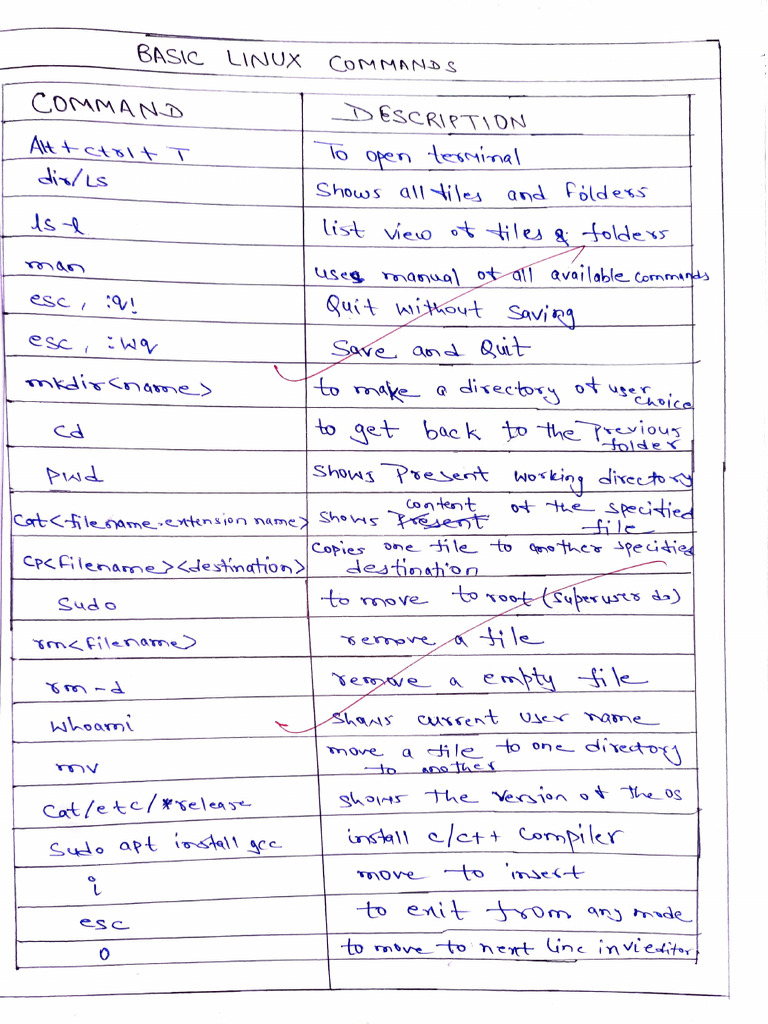 BASIC LINUX COMMANDS
COMMAND DESCRIPTION
Alt + ctrl + T To open terminal
dir/Ls Shows all files and folders
ls -l list view of files & folders
man uses manual of all available commands
esc, :q! Quit without saving
esc, :wq Save and Quit
mkdir<name> to make a directory of user
choice
cd to get back to the Previous
folder
pwd shows Present working directory
content
cat<filename.extension name> shows Present of the specified
file
cp<filename><destination> copies one file to another specified
destination
Sudo to move to root (superuser do)
rm<filename> remove a file
rm -d remove a empty file
whoami shows current user name
mv move a file to one directory
to another
Cat/etc/*release shows the version of the os
Sudo apt install gcc install c/c++ compiler
i move to insert
esc to exit from any mode
o to move to next line in vi editor